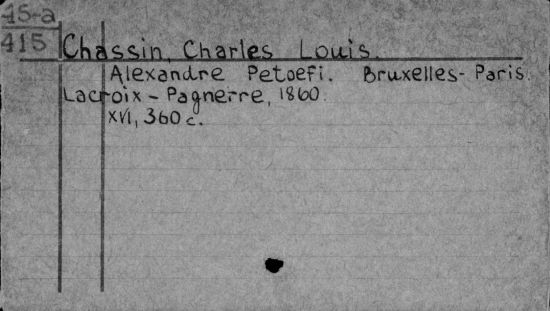 15-a
415 Chassin, Charles Louis.
Alexandre Petoefi. Bruxelles-Paris.
Lacroix - Pagnerre, 1860.
XVI, 360 c.